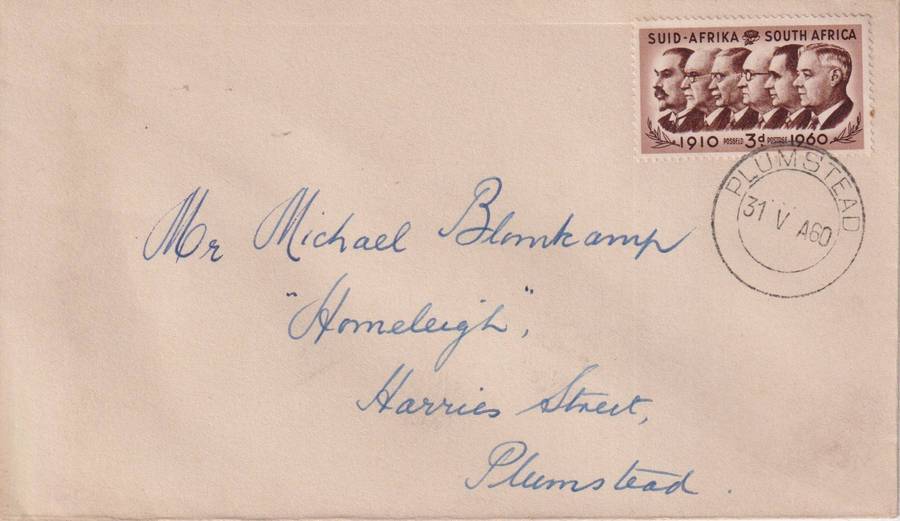 SUID-AFRIKA SOUTH AFRICA
1910 POSSEËL 3d POSTAGE 1960
PLUMSTEAD
31 V A60
Mr Michael Blomkamp
"Homeleigh",
Harries Street,
Plumstead.